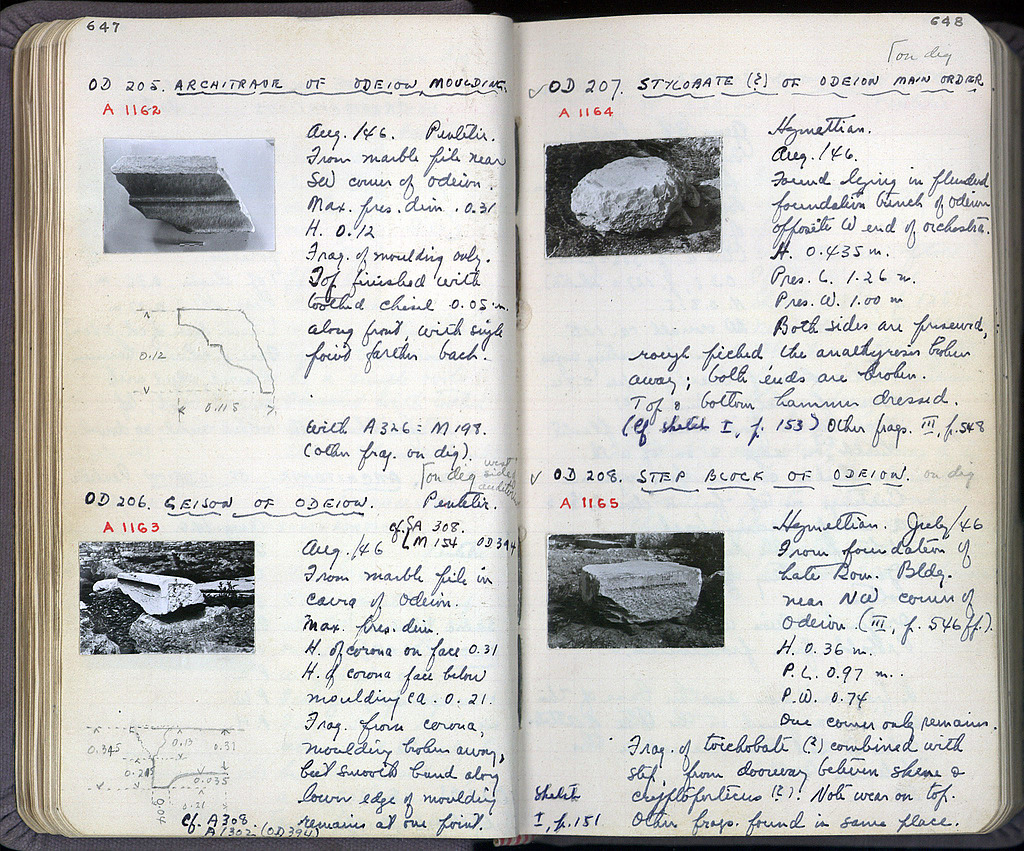 647
OD 205. ARCHITRAVE OF ODEION, MOULDING.
A 1162
Aug. /46. Pentelic.
From marble pile near
SW corner of Odeion.
Max. pres. dim. 0.31
H. 0.12
Frag. of moulding only.
Top finished with
toothed chisel 0.05 m.
along front, with single
point farther back.
0.12
0.115
With A326 = M198.
(other frag. on dig).
on dig west side
OD 206. GEISON OF ODEION. Pentelic.
A 1163
cf. A 308.
M 154 OD 394
Aug. /46
From marble pile in
cavea of Odeion.
Max. pres. dim.
H. of corona on face 0.31
H. of corona face below
moulding ca. 0.21.
Frag. from corona,
moulding broken away,
but smooth band along
lower edge of moulding
remains at one point.
0.345
0.13
0.31
0.035
0.21
0.04
cf. A308.
A1302 (OD394)
648
on dig
OD 207. STYLOBATE (?) OF ODEION MAIN ORDER.
A 1164
Hymettian.
Aug. /46.
Found lying in plundered
foundation trench of Odeion
opposite W end of orchestra.
H. 0.435 m.
Pres. L. 1.26 m.
Pres. W. 1.00 m
Both sides are preserved,
rough picked the anathyrosis broken
away; both ends are broken.
Top & bottom hammer dressed.
(Cf sketch I, p. 153) Other frags. III, p. 548
OD 208. STEP BLOCK OF ODEION. on dig
A 1165
Hymettian. July /46
From foundation of
Late Rom. Bldg.
near NW corner of
Odeion. (III, p. 546 ff.).
H. 0.36 m.
P.L. 0.97 m.
P.W. 0.74
One corner only remains.
Frag. of toichobate (?) combined with
step, from doorway between skene &
cryptoporticus (?). Note wear on top.
Other frags. found in same place.
Sketch
I, p. 151